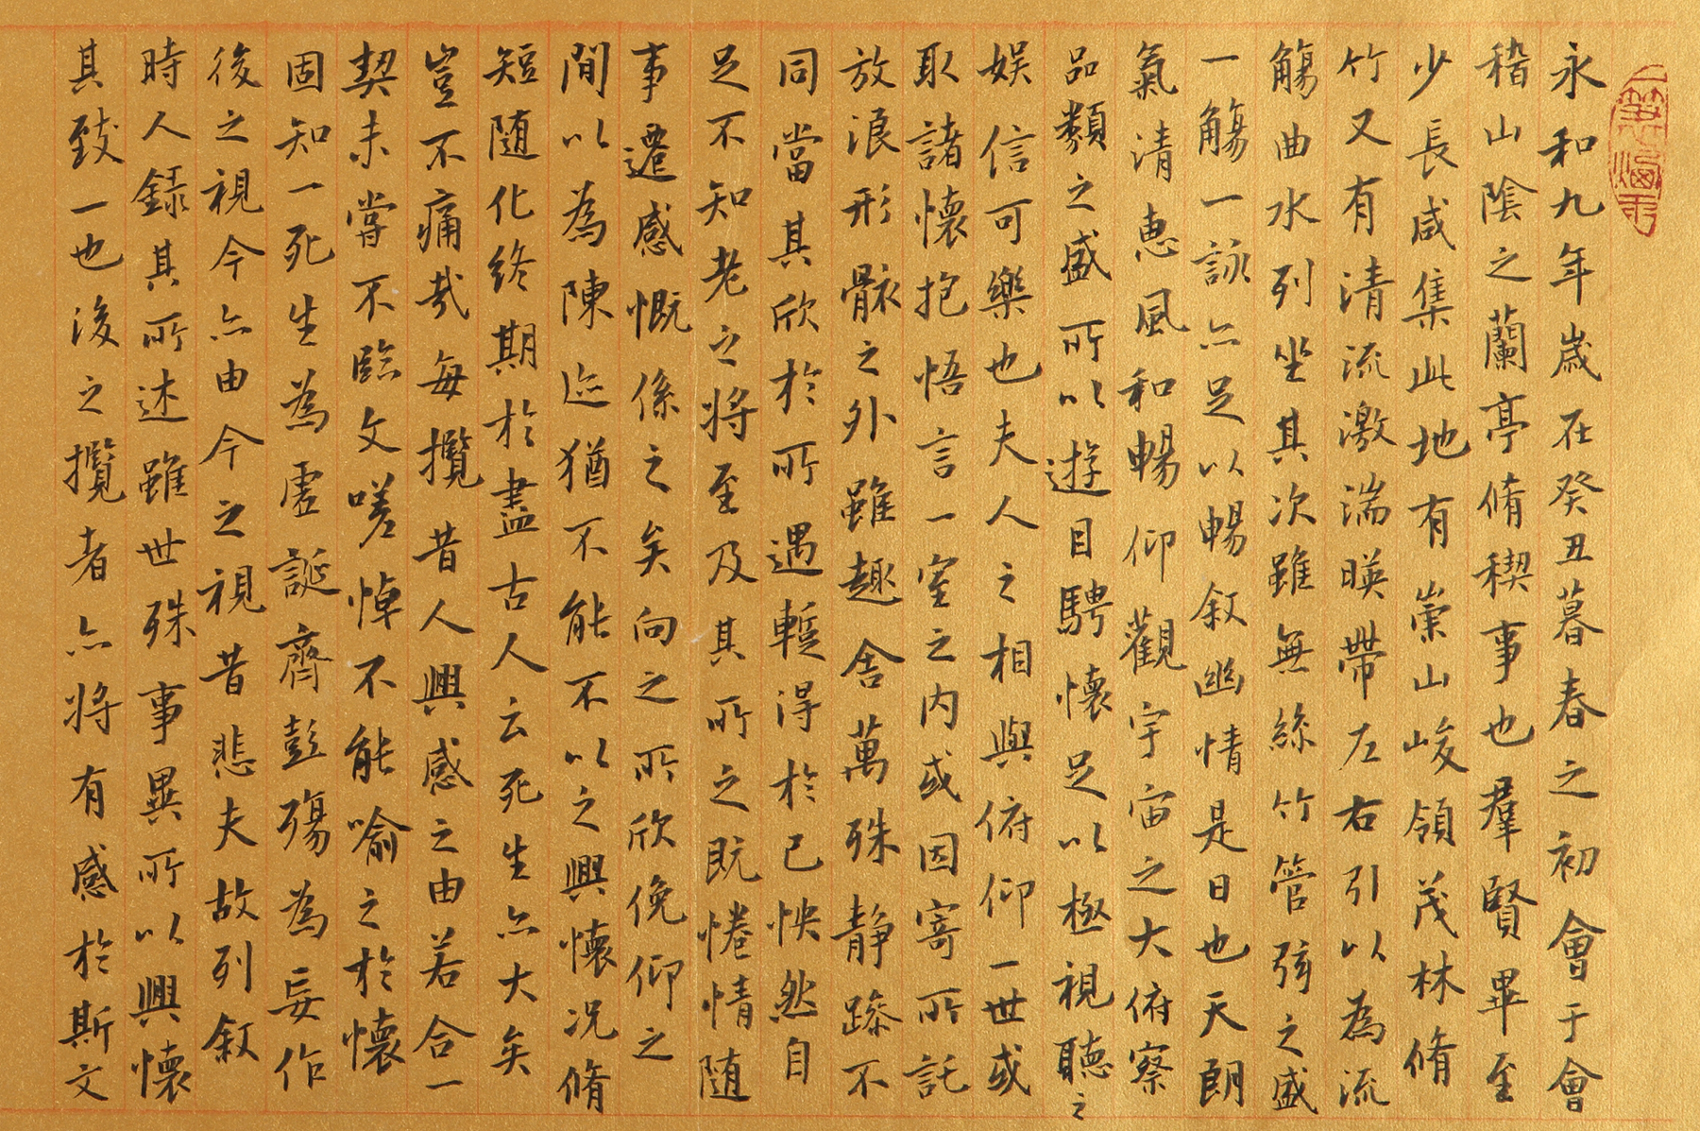 永和九年歲在癸丑暮春之初會于會
稽山陰之蘭亭脩稧事也羣賢畢至
少長咸集此地有崇山峻領茂林脩
竹又有清流激湍暎帶左右引以為流
觴曲水列坐其次雖無絲竹管弦之盛
一觴一詠亦足以暢叙幽情是日也天朗
氣清惠風和暢仰觀宇宙之大俯察
品類之盛所以遊目騁懷足以極視聽之
娛信可樂也夫人之相與俯仰一世或
取諸懷抱悟言一室之内或因寄所託
放浪形骸之外雖趣舍萬殊静躁不
同當其欣於所遇暫得於己怏然自
足不知老之将至及其所之既惓情随
事遷感慨係之矣向之所欣俛仰之
間以為陳迹猶不能不以之興懷况脩
短随化終期於盡古人云死生亦大矣
豈不痛哉每攬昔人興感之由若合一
契未嘗不臨文嗟悼不能喻之於懷
固知一死生為虛誕齊彭殤為妄作
後之視今亦由今之視昔悲夫故列叙
時人録其所述雖世殊事異所以興懷
其致一也後之攬者亦将有感於斯文